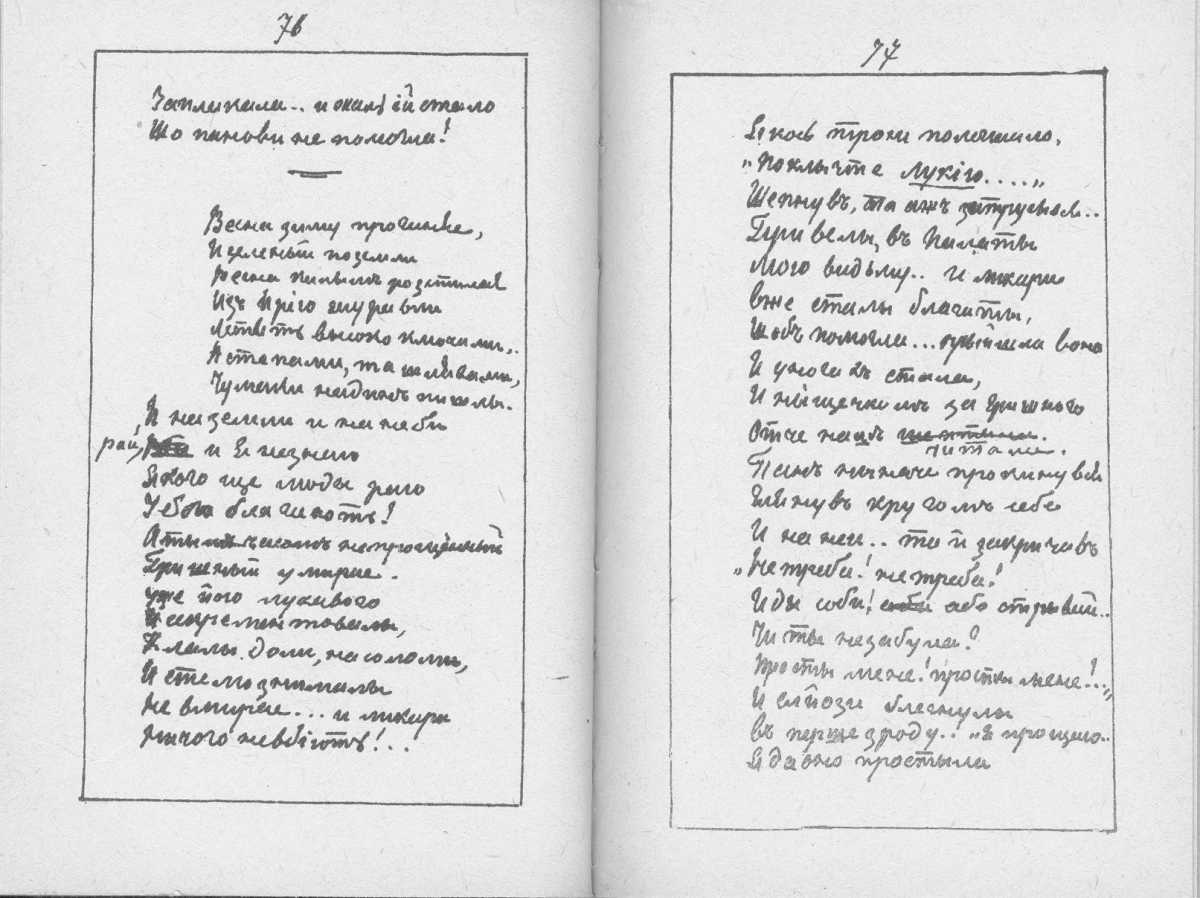 76
Заплакала.. и жаль ій стало
Що панови не помогла!
Весна зиму проганяе,
И зеленый по земли
Весна килымъ розстилае
Изъ Ирія журавли
Летять высоко ключами,..
А степами, та шляхами,
Чумаки на Дінъ пишлы.
И на земли и на неби
рай, и Я не знаю
Якого ще люды раю
У бога благають!
А тымъ часомъ непрощенный
Гришный умирае.
уже його лукавого
И запричащалы,
Клалы доли, на соломи,
И стелю знималы
Не вмирае... и ликари
Ничого невдіють!..
77
Якось трохи полегшало,
„Поклычте Лукію....„
Шепнувъ, та ажъ затрусывся..
Привелы, въ палаты
Мою видьму.. И ликари
вже сталы благаты,
Щобъ помогла... прыйшла вона
И у ногахъ стала,
И нищечкомъ за гришного
Отче нашъ
читала.
Панъ неначе прокинувся
Глянувъ кругомъ себе
И на неи.. та й закричавъ
„Не треба! не треба!
Иды соби! або стрывай..
Чи ты незабула?
Прости мене! прости мене!...„
И слёози блеснулы
въ перше зроду..! „Я прощаю..
Я давно простыла